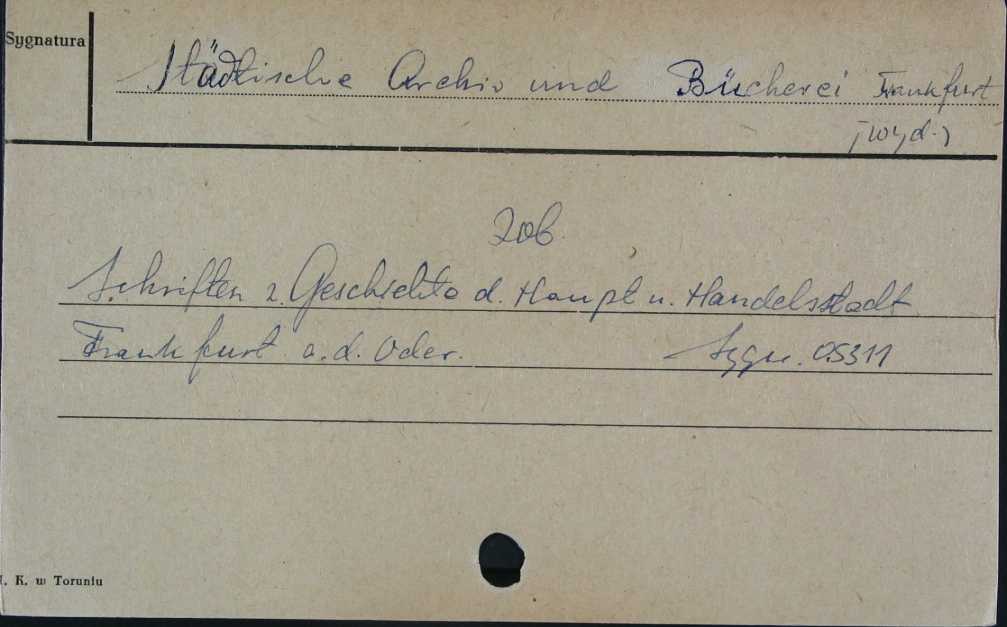 Sygnatura
Städtische Archiv und Bücherei Frankfurt
(wyd.)
Zob.
Schriften z. Geschichte d. Haupt u. Handelsstadt
Frankfurt a.d. Oder. Sygn. 05311
K. w Toruniu